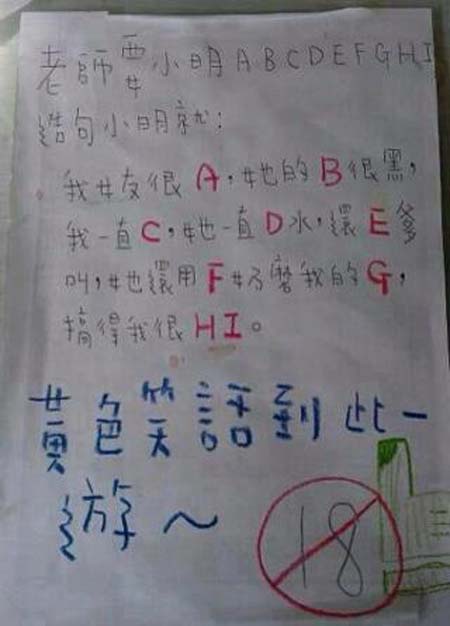 老師要小明ABCDEFGHI
造句小明就:
我女友很A,她的B很黑,
我一直C,她一直D水,還E爹
叫,她還用F奶磨我的G,
搞得我很HI。
黃色笑話到此一
遊~
18